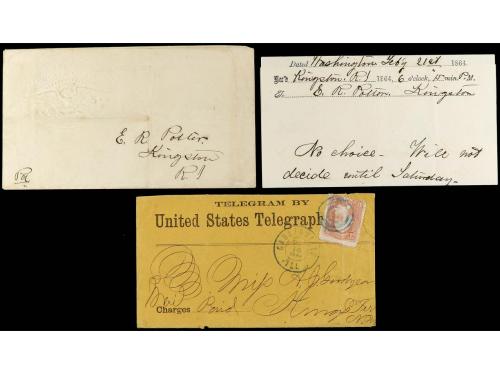 E. R. Potter.
Kingston
R I
Pd
Dated Washington Feby 21st 1864.
Rec'd Kingston. R I 1864, 6 o'clock, min. P.M.
To E. R. Potter. Kingston
No choice - Will not
decide until Saturday.
TELEGRAM BY
United States Telegraph
Miss
Charges Paid